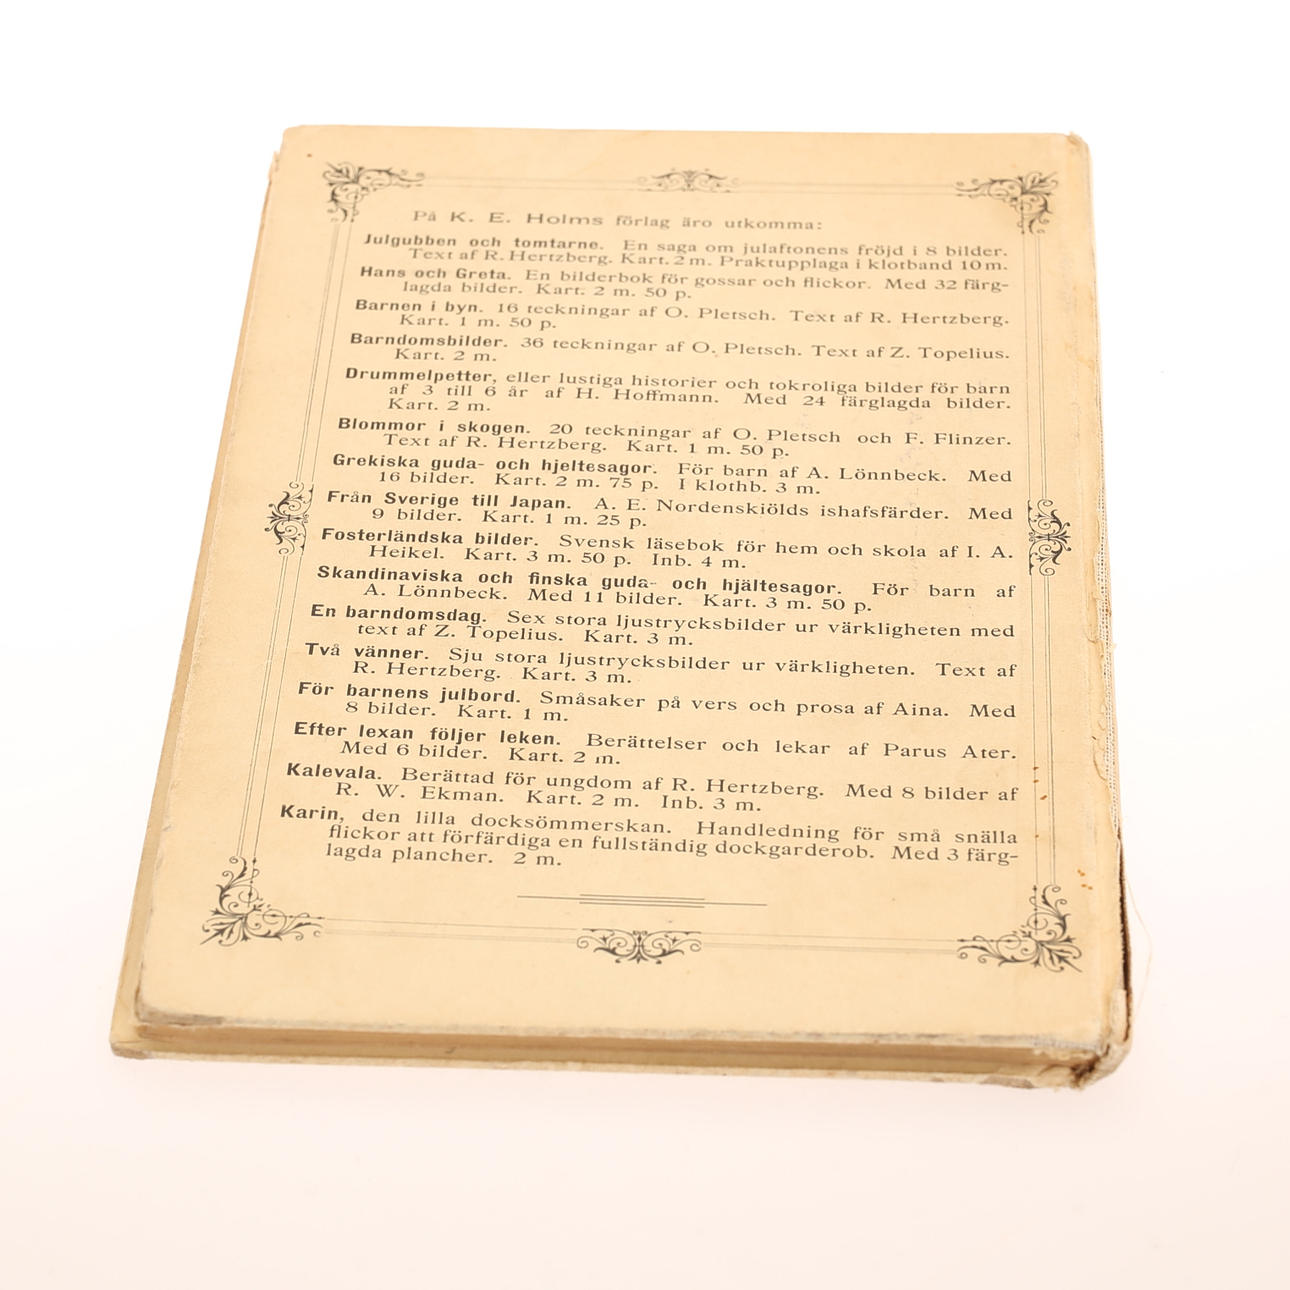 På K. E. Holms förlag äro utkomma:
Julgubben och tomtarne. En saga om julaftonens fröjd i 8 bilder.
Text af R. Hertzberg. Kart. 2 m. Praktupplaga i klotband 10 m.
Hans och Greta. En bilderbok för gossar och flickor. Med 32 färg-
lagda bilder. Kart. 2 m. 50 p.
Barnen i byn. 16 teckningar af O. Pletsch. Text af R. Hertzberg.
Kart. 1 m. 50 p.
Barndomsbilder. 36 teckningar af O. Pletsch. Text af Z. Topelius.
Kart. 2 m.
Drummelpetter, eller lustiga historier och tokroliga bilder för barn
af 3 till 6 år af H. Hoffmann. Med 24 färglagda bilder.
Kart. 2 m.
Blommor i skogen. 20 teckningar af O. Pletsch och F. Flinzer.
Text af R. Hertzberg. Kart. 1 m. 50 p.
Grekiska guda- och hjeltesagor. För barn af A. Lönnbeck. Med
16 bilder. Kart. 2 m. 75 p. I klothb. 3 m.
Från Sverige till Japan. A. E. Nordenskiölds ishafsfärder. Med
9 bilder. Kart. 1 m. 25 p.
Fosterländska bilder. Svensk läsebok för hem och skola af I. A.
Heikel. Kart. 3 m. 50 p. Inb. 4 m.
Skandinaviska och finska guda- och hjältesagor. För barn af
A. Lönnbeck. Med 11 bilder. Kart. 3 m. 50 p.
En barndomsdag. Sex stora ljustrycksbilder ur värkligheten med
text af Z. Topelius. Kart. 3 m.
Två vänner. Sju stora ljustrycksbilder ur värkligheten. Text af
R. Hertzberg. Kart. 3 m.
För barnens julbord. Småsaker på vers och prosa af Aina. Med
8 bilder. Kart. 1 m.
Efter lexan följer leken. Berättelser och lekar af Parus Ater.
Med 6 bilder. Kart. 2 m.
Kalevala. Berättad för ungdom af R. Hertzberg. Med 8 bilder af
R. W. Ekman. Kart. 2 m. Inb. 3 m.
Karin, den lilla docksömmerskan. Handledning för små snälla
flickor att förfärdiga en fullständig dockgarderob. Med 3 färg-
lagda plancher. 2 m.